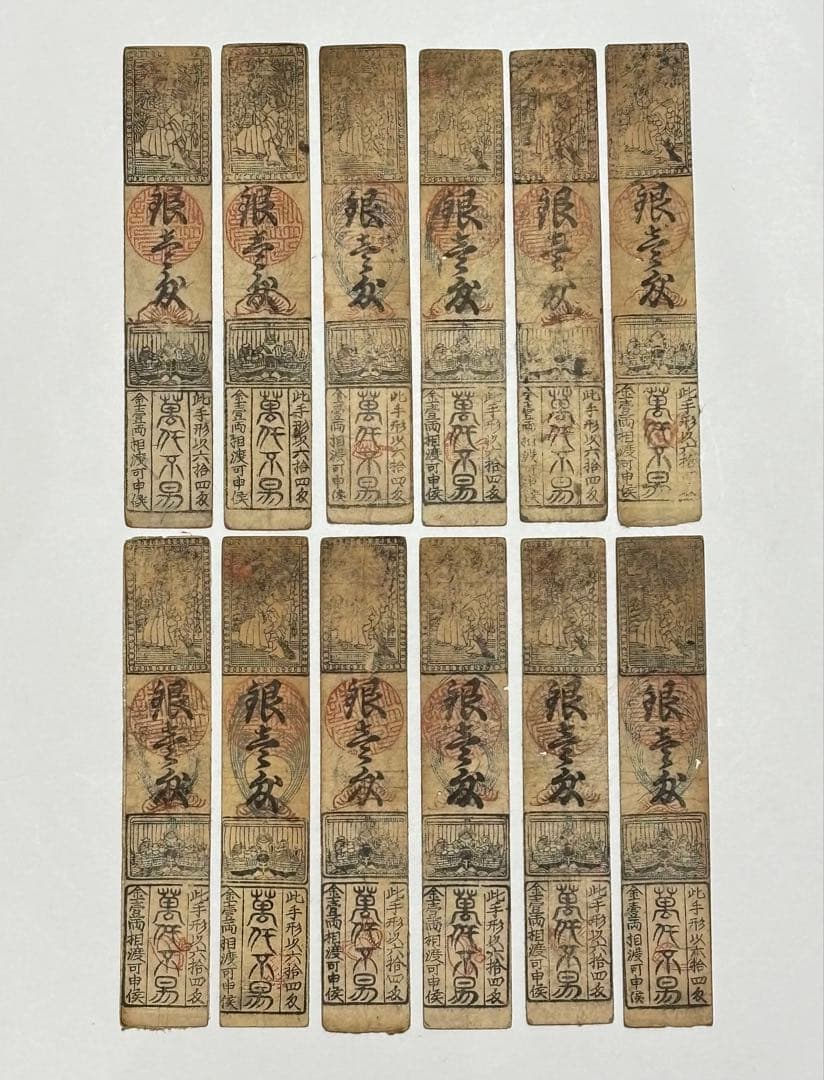 銀壹匁
此手形以六拾四匁
萬代不易
金壹両相渡可申候
銀壹匁
此手形以六拾四匁
萬代不易
金壹両相渡可申候
銀壹匁
此手形以六拾四匁
萬代不易
金壹両相渡可申候
銀壹匁
此手形以拾四匁
萬代不易
金壹両相渡可申候
銀壹匁
此手形以六拾四匁
萬代不易
金壹両相渡可申候
銀壹匁
此手形以六拾
萬代不易
金壹両相渡可申候
銀壹匁
此手形以六拾四匁
萬代不易
金壹両相渡可申候
銀壹匁
此手形以六拾四匁
萬代不易
金壹両相渡可申候
銀壹匁
此手形以六拾四匁
萬代不易
金壹両相渡可申候
銀壹匁
此手形以六拾四匁
萬代不易
金壹両相渡可申候
銀壹匁
此手形以六拾四匁
萬代不易
金壹両相渡可申候
銀壹匁
此手形以六拾四匁
萬代不易
金壹両相渡可申候